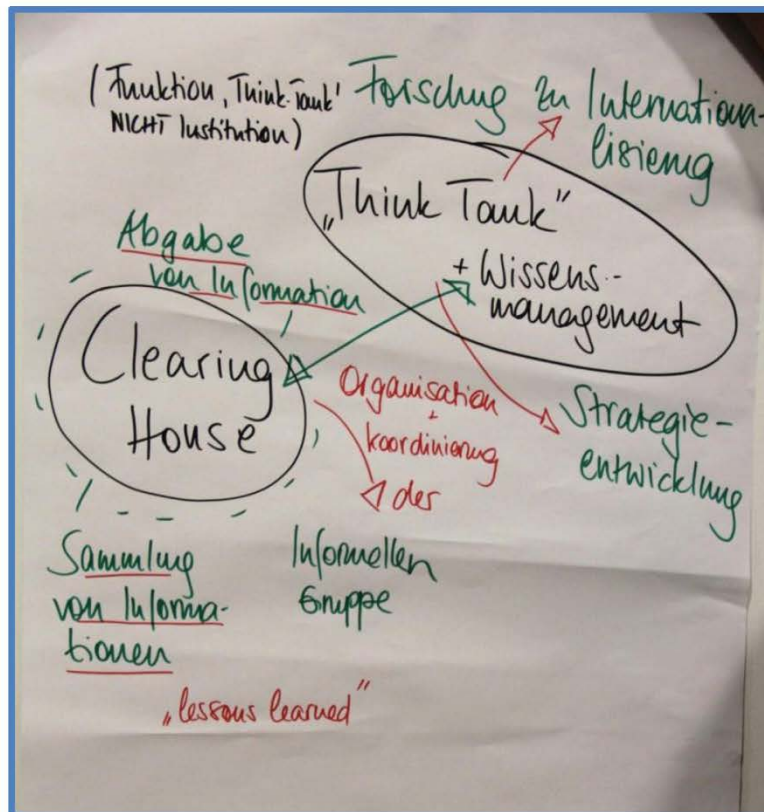 (Funktion „Think-Tank'
NICHT Institution)
Forschung zu Internationa-
lisierung
„Think Tank"
+ Wissens-
management
Abgabe
von Information
Clearing
House
Organisation
+
koordinierung
der
Informellen
Gruppe
Strategie-
entwicklung
Sammlung
von Informa-
tionen
„lessons learned"